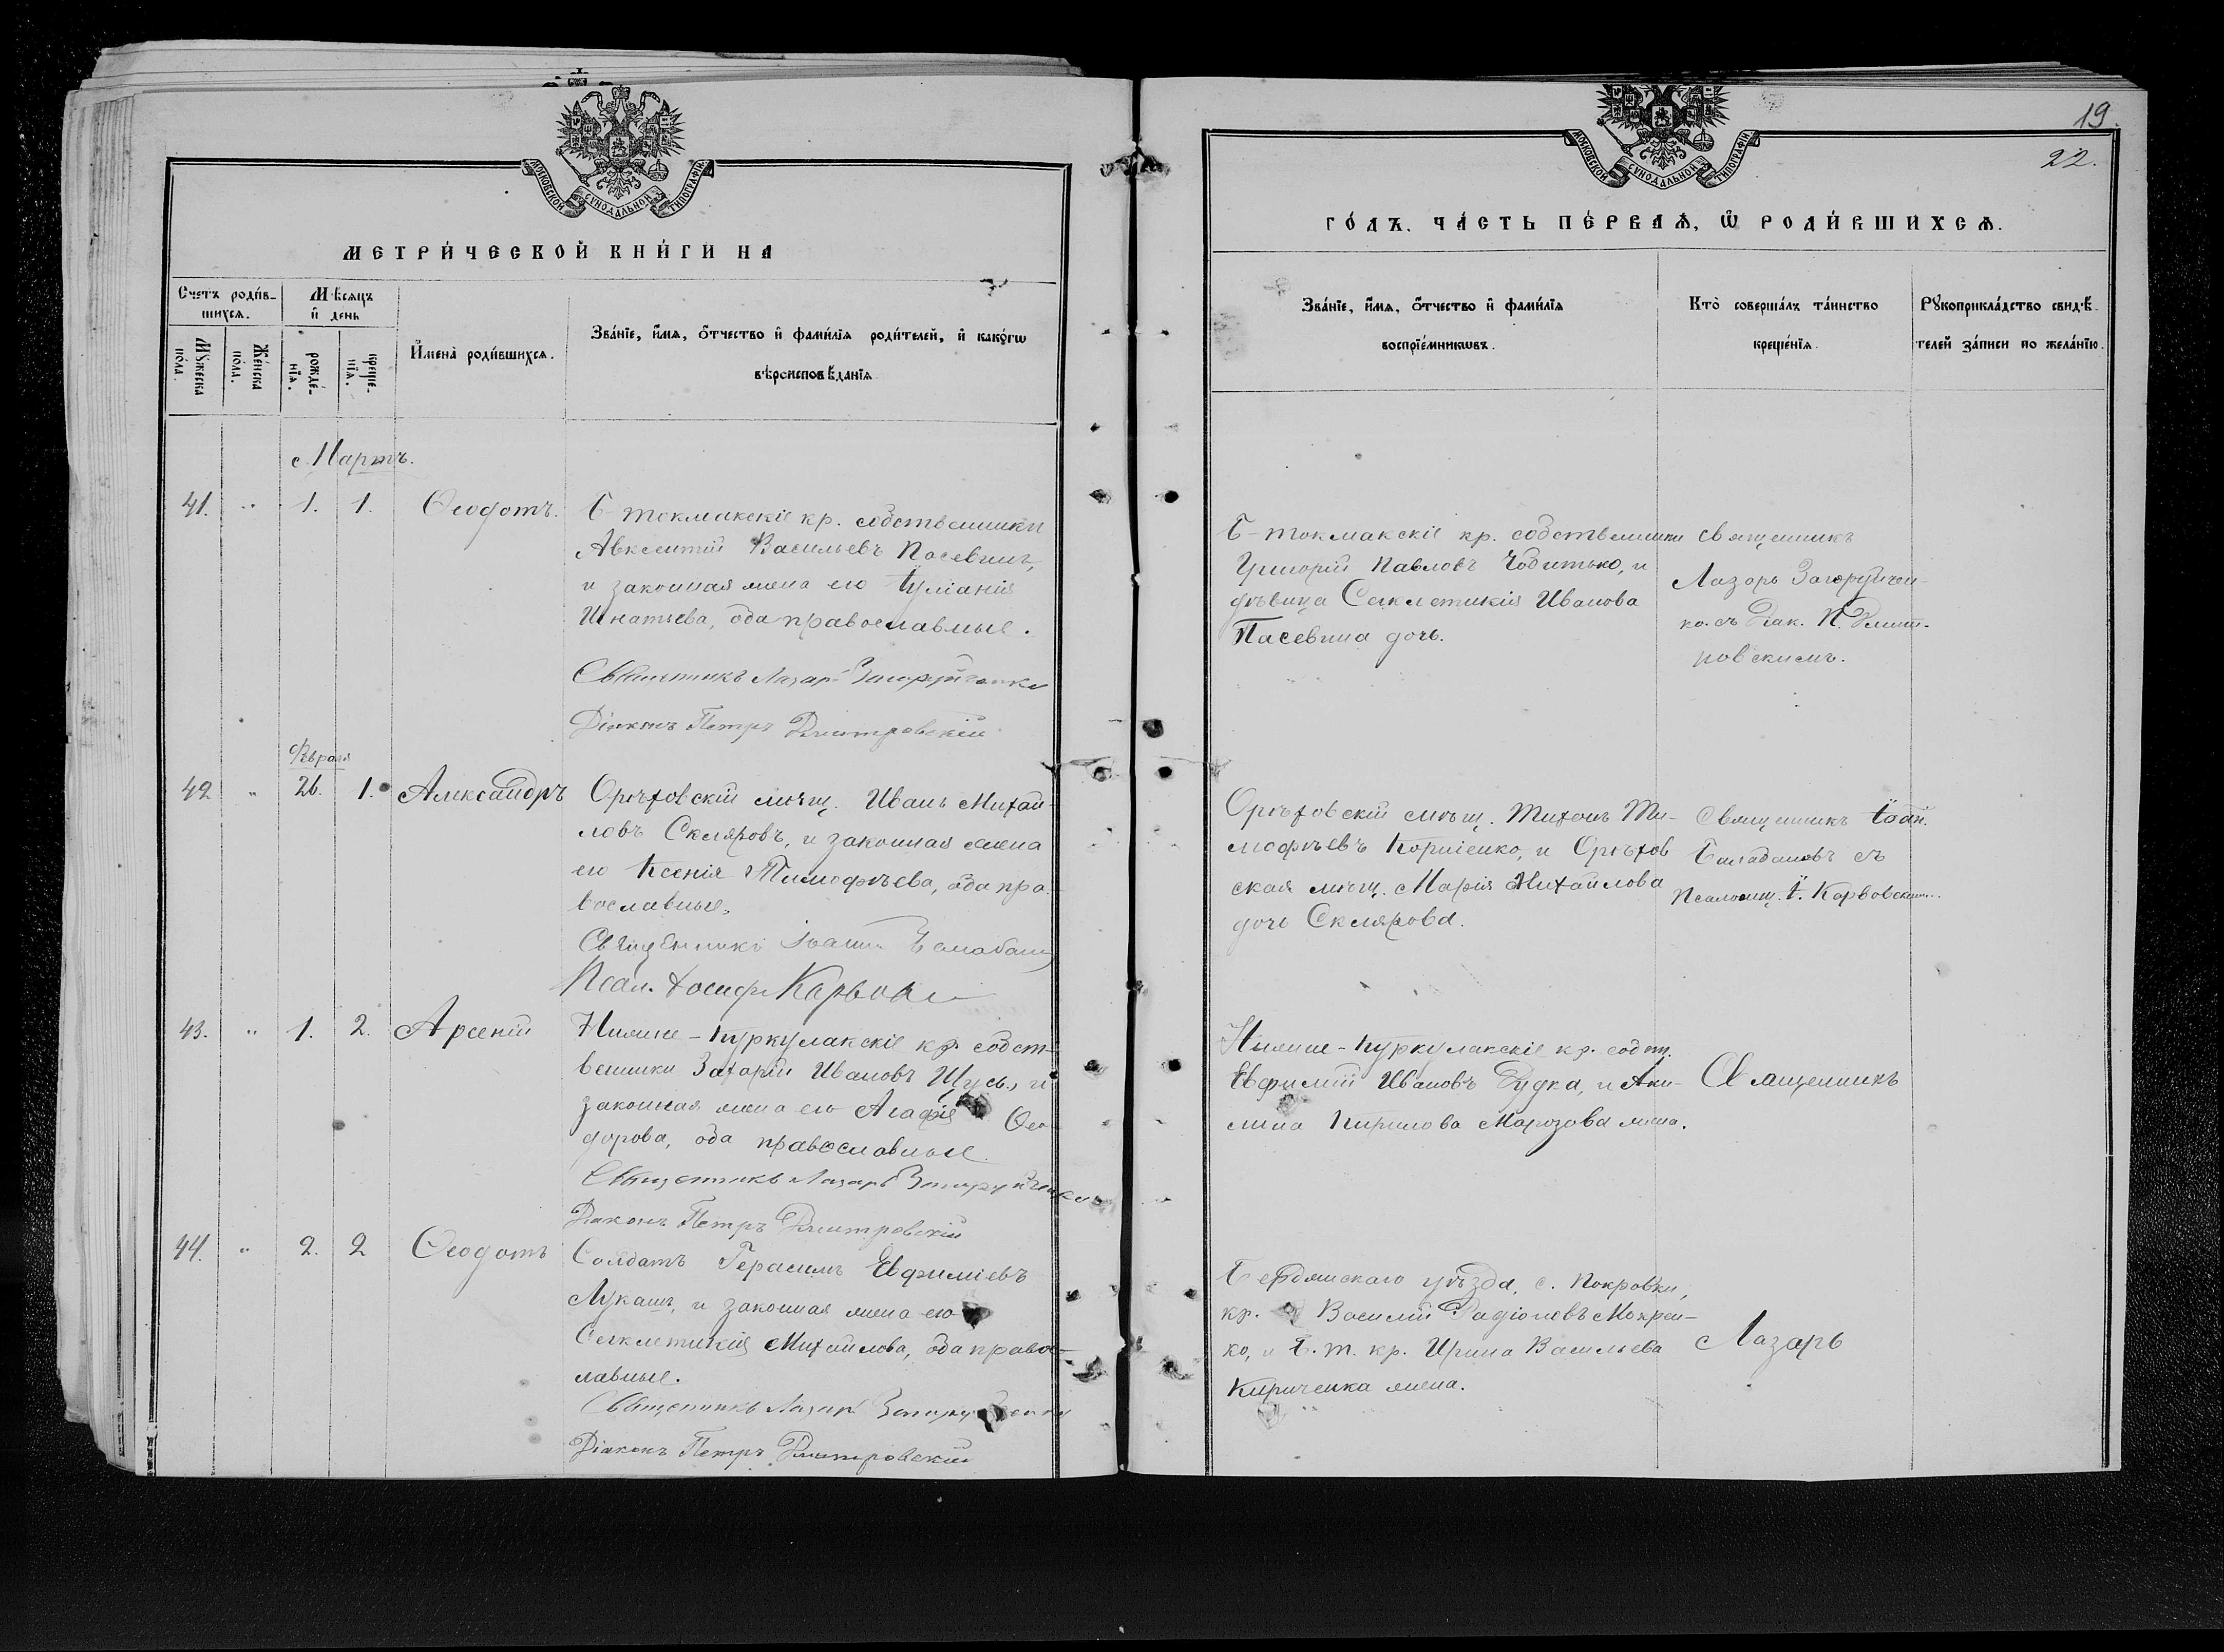 МОСКОВСКОЙ СѴНОДАЛЬНОЙ ТИПОГРАФІИ
МЕТРИ́ЧЕСКОЙ КНИ́ГИ НА
Счетъ роди́в-
шихсѧ.
Мѣсѧцъ
и҆ день
Мꙋ́жеска
по́ла.
Же́нска
по́ла.
рожде́-
нїѧ.
креще́-
нїѧ.
И҆мена̀ роди́вшихсѧ.
Зва́нїе, и҆́мѧ, ѻ҆́тчество и҆ фами́лїѧ роди́телей, и҆ како́гѡ
вѣроисповѣ́данїѧ
Мартъ.
41. " 1. 1. Ѳеодотъ.
Б-токмакскіе кр. собственники
Авксентій Васильевъ Пасевинъ,
и законная жена его Іуліанія
Игнатьева, оба православные.
Священникъ Лазарь Загоруйченко
Діаконъ Петръ Дмитровскій
Февраля
42 " 26. 1. Александръ
Орѣховскій мѣщ. Иванъ Михай-
ловъ Скляровъ, и законная жена
его Ксенія Тимофѣева, оба пра-
вославные.
Священникъ Іоаннъ
Псал. Іосифъ
43. " 1. 2. Арсеній
Нижне-Куркулакскіе кр. собст-
венники Захарій Ивановъ Щусь, и
законная жена его Агафія Ѳео-
дорова, оба православные.
Священникъ Лазарь Загоруйченко
Діаконъ Петръ Дмитровскій
44. " 2. 2 Ѳеодотъ
Солдатъ Герасимъ Евфиміевъ
Лукашъ, и законная жена его
Секлетикія Михайлова, оба правос-
лавные.
Священникъ Лазарь Загоруйченко
Діаконъ Петръ Дмитровскій
19.
22.
МОСКОВСКОЙ СѴНОДАЛЬНОЙ ТИПОГРАФІИ
ГО́ДЪ. ЧА́СТЬ ПЕ́РВАѦ, Ѡ҆ РОДИ́ВШИХСѦ.
Зва́нїе, и҆́мѧ, ѻ҆́тчество и҆ фами́лїѧ
воспрїе́мникѡвъ.
Кто̀ соверша́лъ та́инство
креще́нїѧ.
Рꙋкоприкла́дство свидѣ́-
телей за́писи по жела́нїю.
Б-токмакскіе кр. собственники
Григорій Павловъ Чобитько, и
дѣвица Секлетикія Иванова
Пасевина дочь.
Священникъ
Лазарь Загоруйчен-
ко съ Діак. П. Дмит-
ровскимъ.
Орѣховскій мѣщ. Тихонъ Ти-
мофѣевъ Корніенко, и Орѣхов
ская мѣщ. Марія Михайлова
дочь Склярова.
Священникъ Іоан.
съ
Псаломщ. І.
Нижне-Куркулакскіе кр. собст.
Евфимій Ивановъ Дудка, и Аки-
лина Кирилова Марозова жена.
Священникъ
Бердянскаго уѣзда, с. Покровки,
кр. Василій Радіоновъ Мокрен-
ко, и Б. т. кр. Ирина Васильева
Кириченка жена.
Лазарь